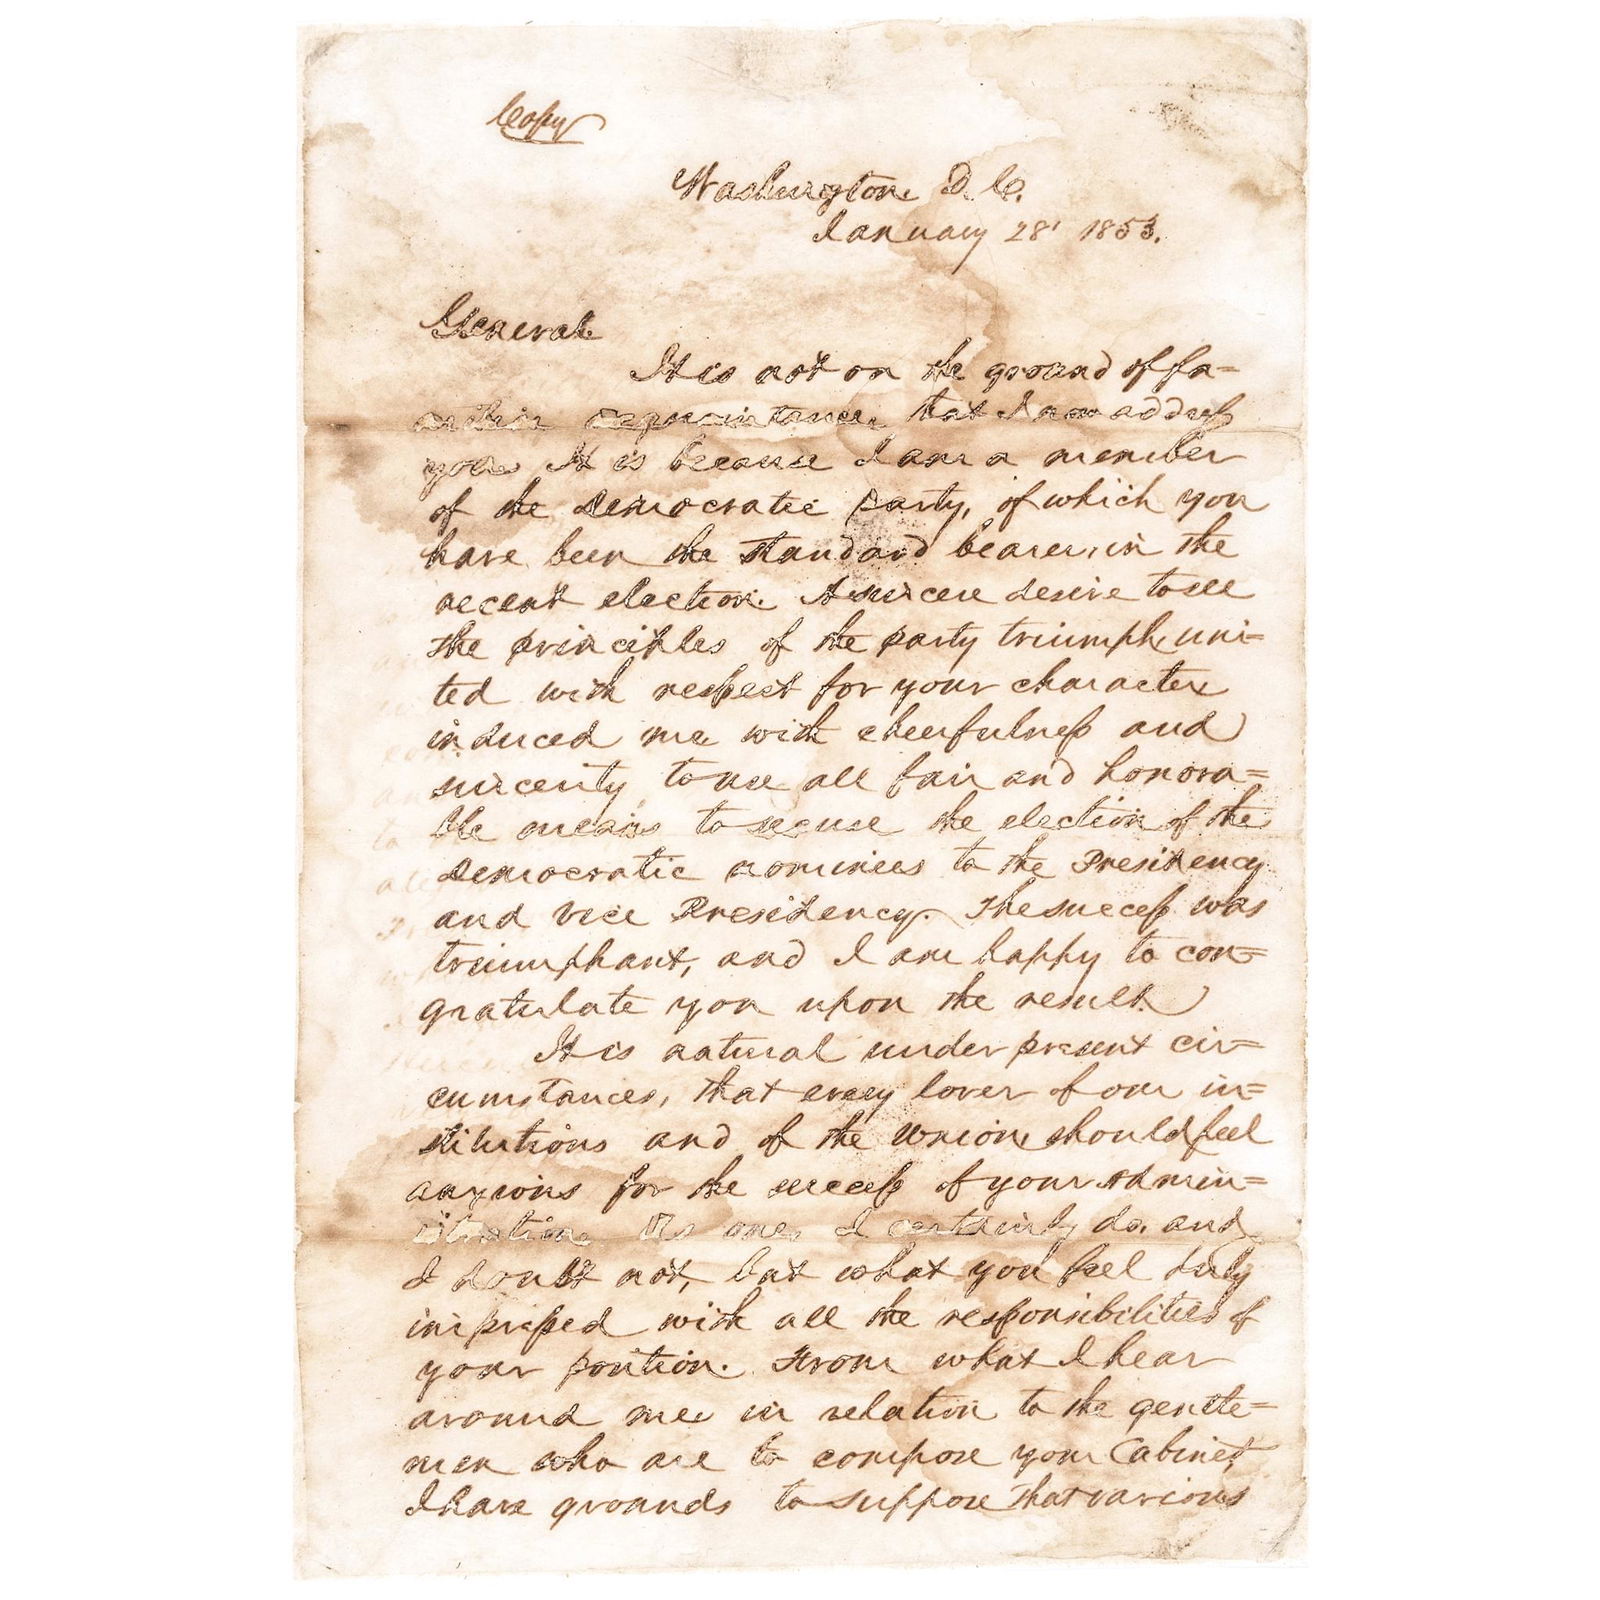 Copy
Washington D. C.
January 28' 1853.
General
It is not on the ground of fa=
acquaintance, that I now address
you. It is because I am a member
of the Democratic party, of which you
have been the standard bearer, in the
recent election. A sincere desire to see
the principles of the party triumph, uni=
ted with respect for your character
induced me with cheerfulness and
sincerity, to use all fair and honora=
ble means to secure the election of the
Democratic nominees to the Presidency
and Vice Presidency. The success was
triumphant, and I am happy to con=
gratulate you upon the result.
It is natural under present cir=
cumstances, that every lover of our in=
stitutions and of the Union, should feel
anxious for the success of your admin=
istration. As one, I certainly do, and
I doubt not, but what you feel duly
impressed with all the responsibilities of
your position. From what I hear
around me in relation to the gentle=
men who are to compose your Cabinet,
I have grounds to suppose that various